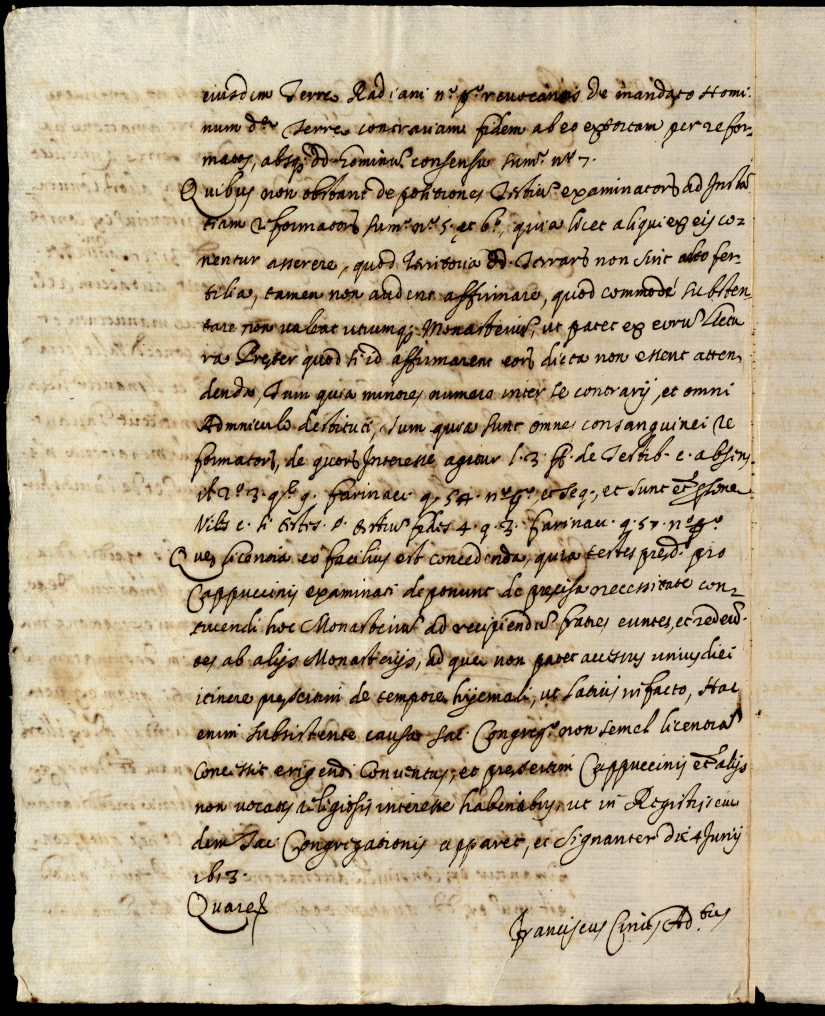 eiusdem Terre Radiani n.º p.º revocantis de mandato Homi:
num d.ᵉ Terre contrariam fidem ab eo extortam per refor-
matos, absq; dd. hominū consensu sum.º n.º 7.
Quibus non obstant depositiones Testiū examinators ad Instā
tiam reformators sum.º n.º 5. et 6.º, quia licet aliqui ex eis co-
nentur asserere, quod territoria dd. Terrars non sint adeo fer-
tilia, tamen non audent affirmare, quod commodè substen-
tare non valeat utrumq; Monasteriū, ut patet ex eorū lectu
ra Preter quod si id affirmarent eors dicta non essent atten
denda, Tum quia minores numero inter se contrarij, et omni
Admniculo destituti, Tum quia sunt omnes consanguinei re
formators, de quors Interesse agitur l. 3. ff. de Testib. c.
farinac. q. 54. n.º et seq., et sunt
4. q. 3. farinac. q. 57. n.º
Que licentia eo facilius est concedenda, quia testes pred. pro
Cappuccinis examinati deponunt de precisa necessitate con-
struendi hoc Monasteriū ad recipiendū fratres euntes, et redeū-
tes ab alijs Monasterijs, ad que non patet accessus unius diei
itinere presertim de tempore hijemali, ut latius in facto, Hac
enim subsistente causa Sac. Congreg.º non semel licentiā
concessit erigendi Conventus, et presertim Cappuccinis et.ᵃ alijs
non vocatis religiosis interesse habentibus, ut in Registris eius
dem Sac. Congregationis apparet, et signanter die 4 Junij
1613.
Quare &
Franciscus Cinus Ad.ᵗᵘˢ